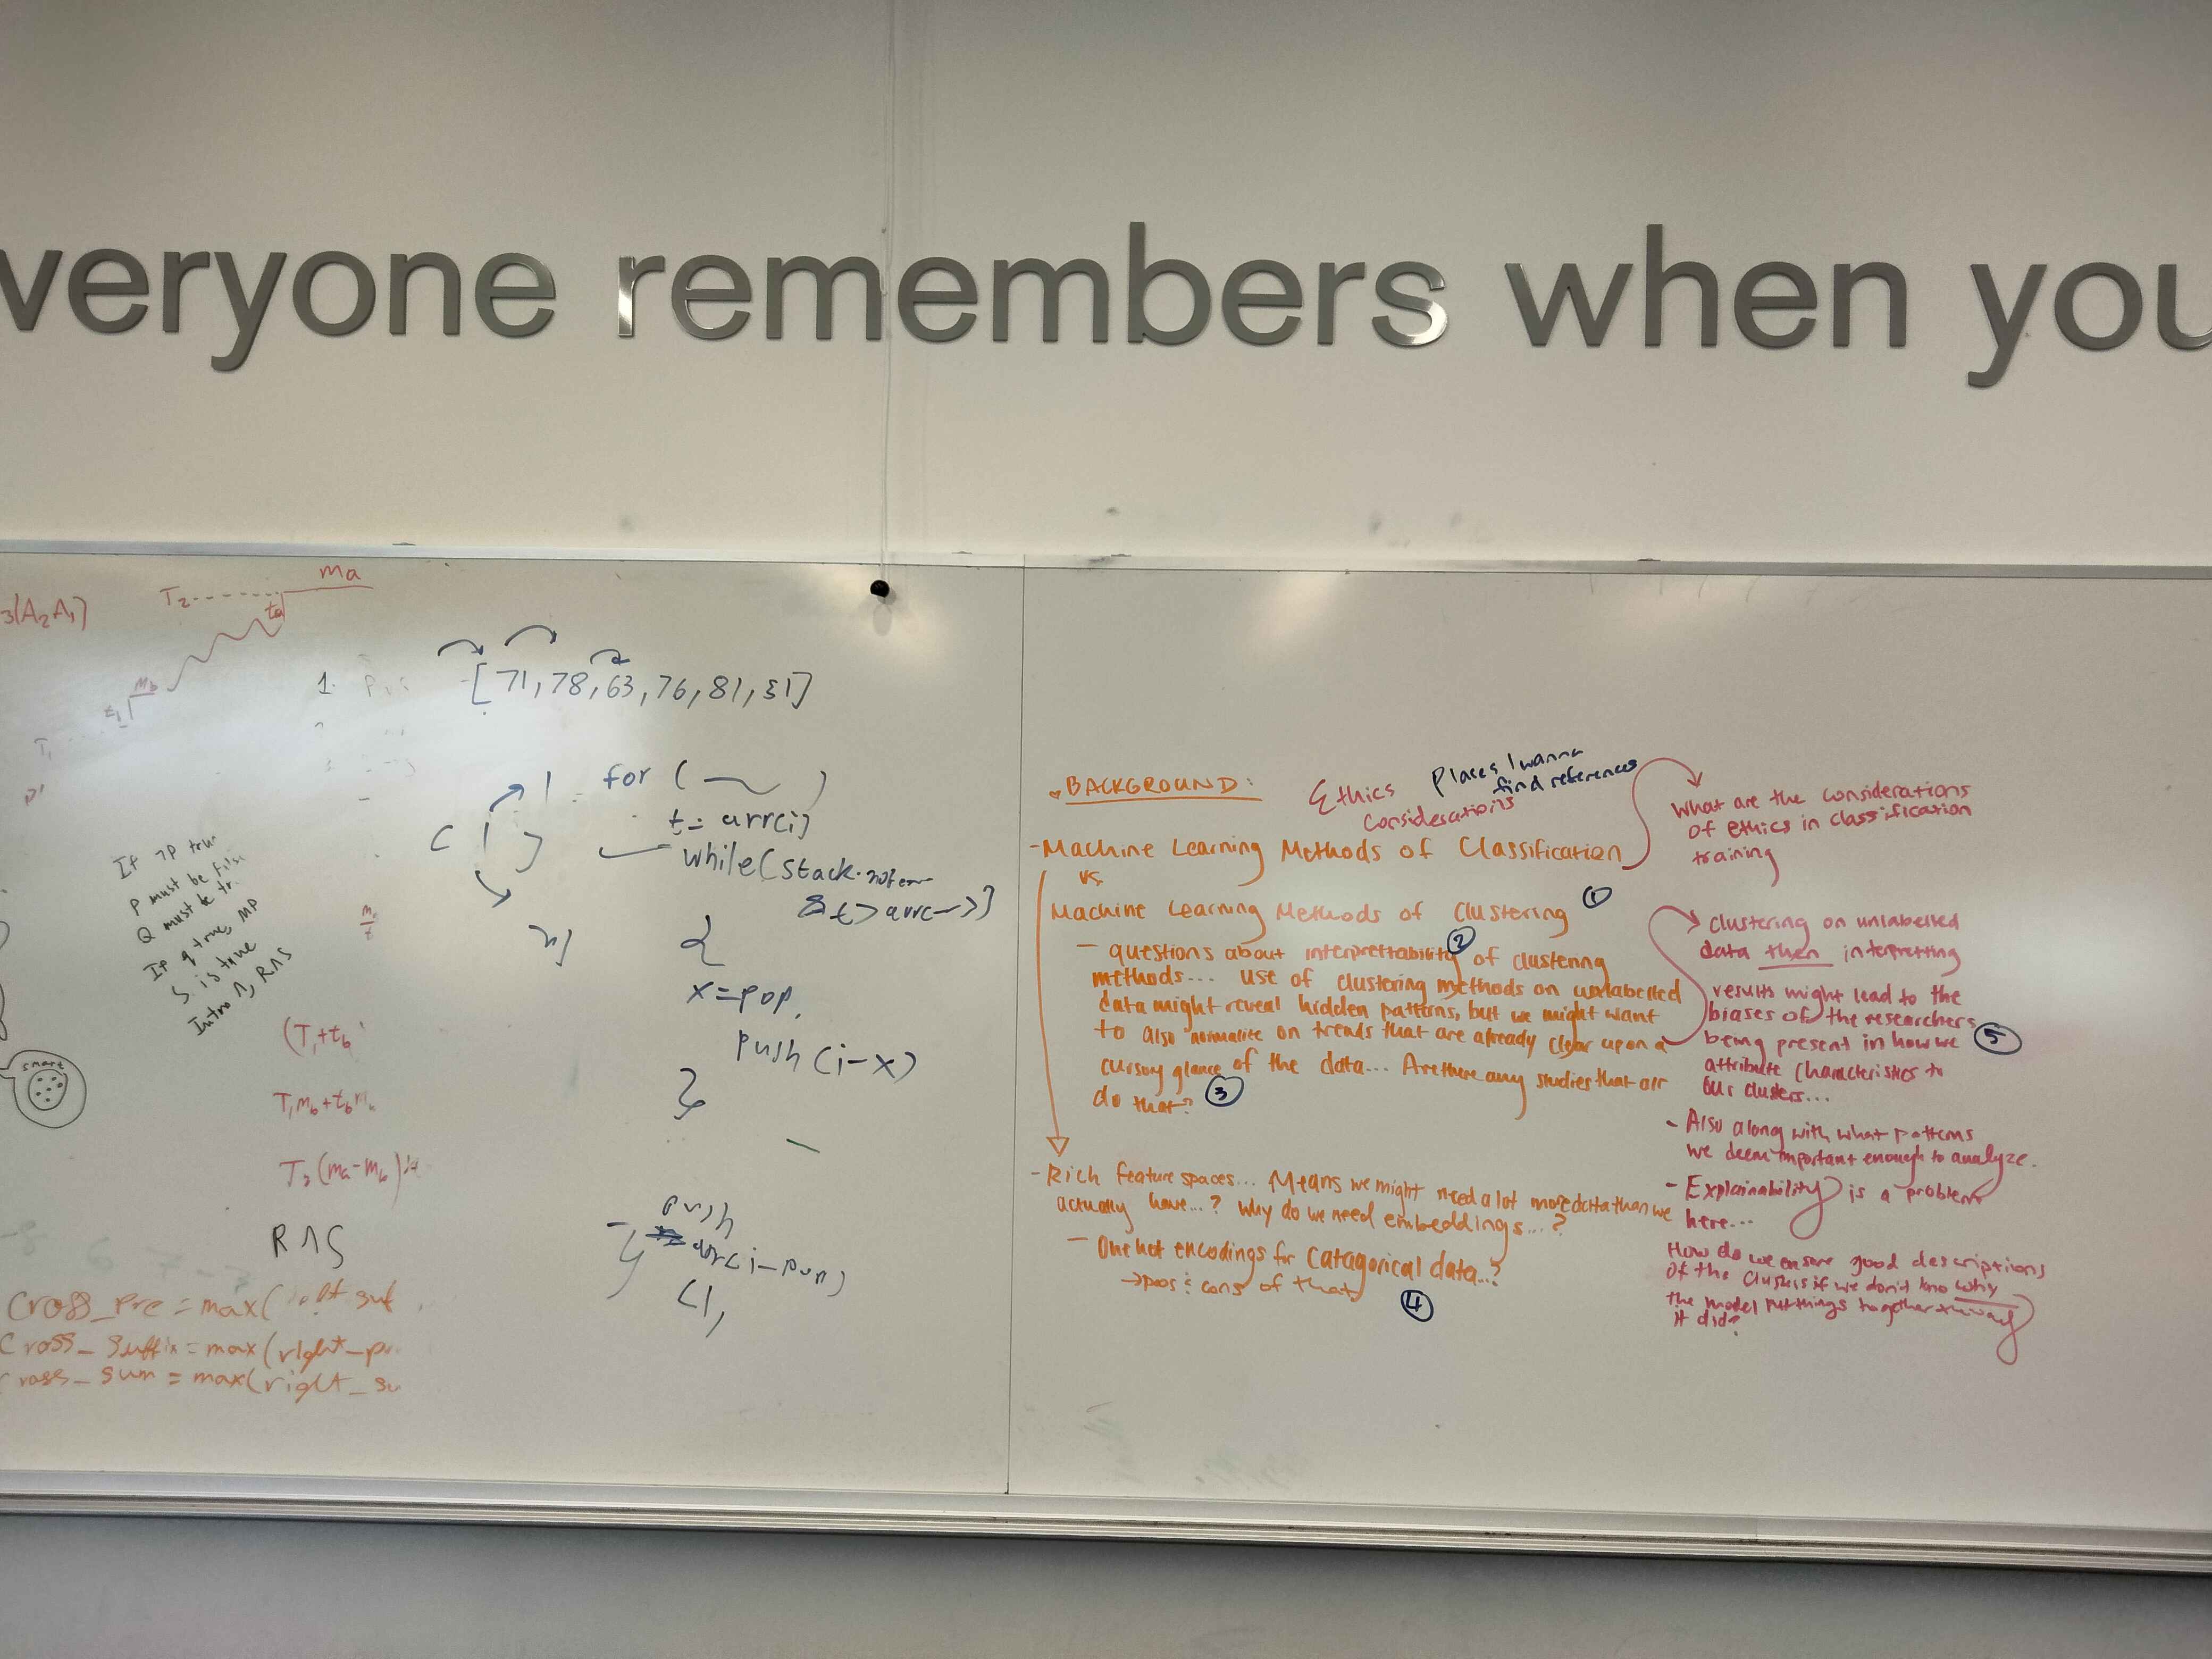 veryone remembers when you
3(A₂A₁)
T₂
ma
ta
mb
T₁
1.
[71, 78, 63, 76, 81, 51]
for ( )
t = arr[i]
while(stack.
& t > arr
{
x = pop,
push (i-x)
}
push
If ¬P true
P must be false
Q must be tr
If q true, MP
S is true
Intro ∧, R∧S
smart
(T₁+tb
T₁mb+tb
(ma-mb)
R∧S
Cross_pre = max(left suf
Cross_suffix = max(right_p
Cross_sum = max(right_su
BACKGROUND:
Ethics
Considerations
Places I wanna
find references
- Machine Learning Methods of Classification
vs
Machine Learning Methods of Clustering ①
- questions about interprettability ② of clustering
methods... use of clustering methods on unlabelled
data might reveal hidden patterns, but we might want
to also normalize on trends that are already clear upon a
cursory glance of the data... Are there any studies that
do that? ③
- Rich feature spaces... Means we might need a lot more data than we
actually have...? Why do we need embeddings...?
- One hot encodings for catagorical data...?
→ pros & cons of that ④
What are the considerations
of ethics in classification
training
clustering on unlabelled
data then interpretting
results might lead to the
biases of the researchers
being present in how we ⑤
attribute characteristics to
our clusters...
- Also along with what patterns
we deem important enough to analyze.
- Explainability is a problem
here...
How do we ensure good descriptions
of the clusters if we don't kno why
the model put things together the way
it did?